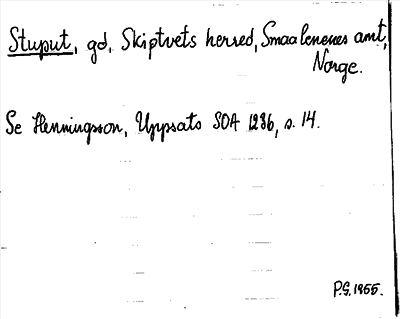 Stuput, gd, Skiptvets herred, Smaalenenes amt,
Norge.
Se Henningsson, Uppsats SOA 1236, s. 14.
P.G. 1955.